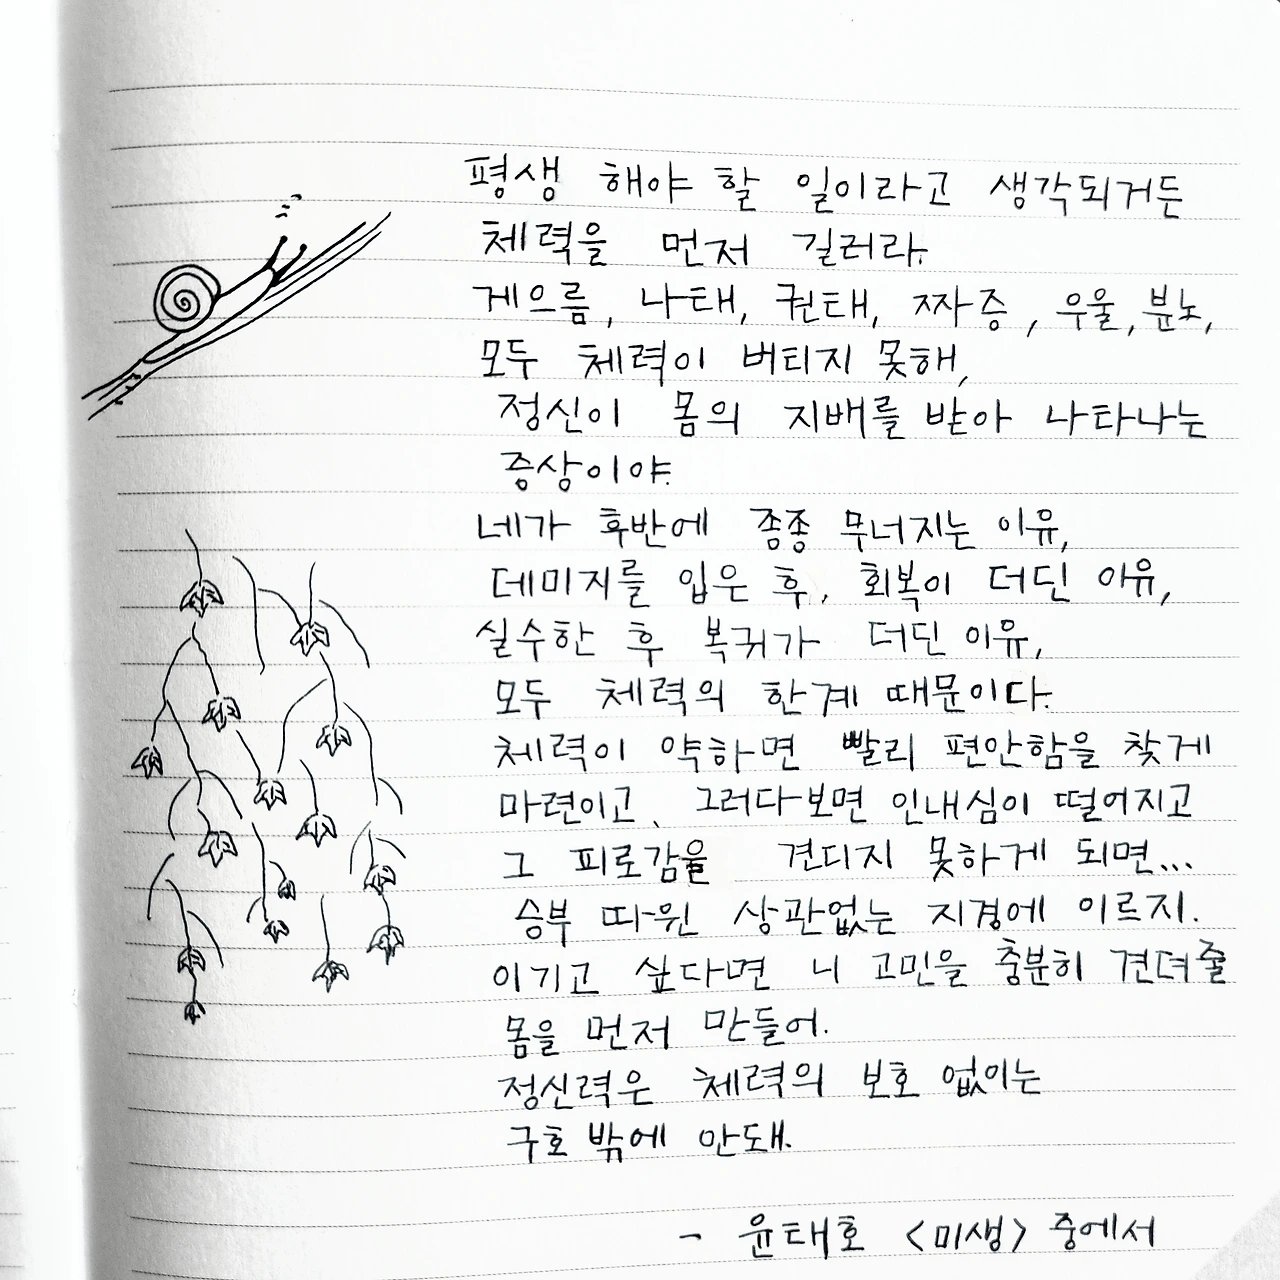 평생 해야 할 일이라고 생각되거든
체력을 먼저 길러라.
게으름, 나태, 권태, 짜증, 우울, 분노,
모두 체력이 버티지 못해,
정신이 몸의 지배를 받아 나타나는
증상이야.
네가 후반에 종종 무너지는 이유,
데미지를 입은 후, 회복이 더딘 이유,
실수한 후 복귀가 더딘 이유,
모두 체력의 한계 때문이다.
체력이 약하면 빨리 편안함을 찾게
마련이고, 그러다보면 인내심이 떨어지고
그 피로감을 견디지 못하게 되면...
승부 따윈 상관없는 지경에 이르지.
이기고 싶다면 니 고민을 충분히 견뎌줄
몸을 먼저 만들어.
정신력은 체력의 보호 없이는
구호 밖에 안돼.
- 윤태호 <미생> 중에서